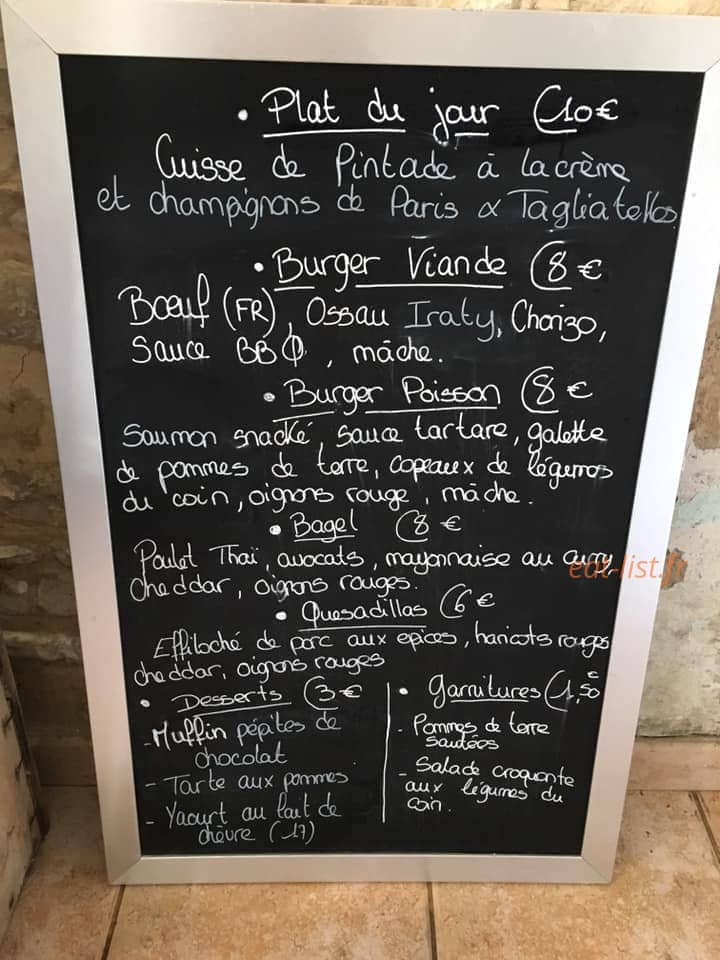 • Plat du jour (10€
Cuisse de Pintade à la crème
et champignons de Paris & Tagliatelles
• Burger Viande (8 €
Bœuf (FR), Ossau Iraty, Chorizo,
Sauce BBQ, mâche.
• Burger Poisson (8 €
Saumon snacké, sauce tartare, galette
de pommes de terre, copeaux de légumes
du coin, oignons rouge, mâche.
• Bagel (8 €
Poulet Thaï, avocats, mayonnaise au curry,
cheddar, oignons rouges.
eat-list.fr
• Quesadillas (6 €
Effiloché de porc aux epices, haricots rouges
cheddar, oignons rouges
• Desserts (3 €
- Muffin pépites de
chocolat
- Tarte aux pommes
- Yaourt au lait de
chèvre (17)
• Garnitures (1,50€
- Pommes de terre
sautées
- Salade croquante
aux légumes du
coin.